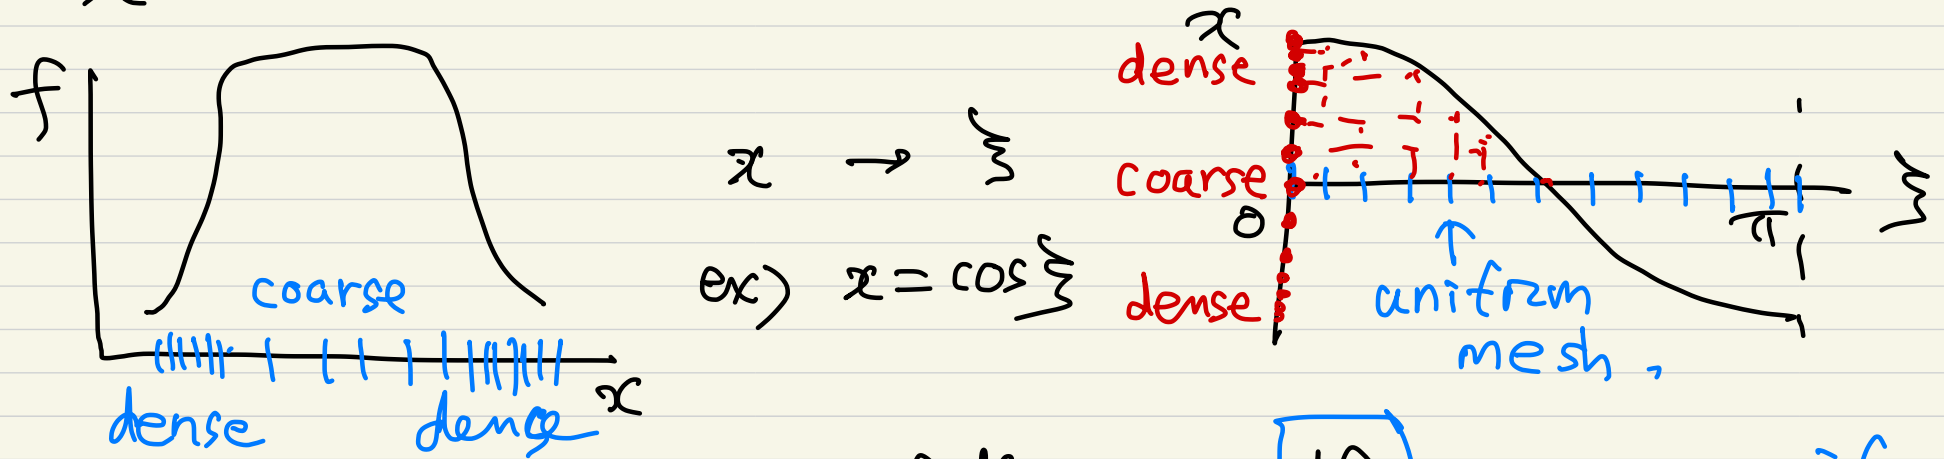 f
coarse
dense dense x
x → ξ
ex) x = cos ξ
x
dense
coarse
0
dense
π
ξ
↑
uniform
mesh,